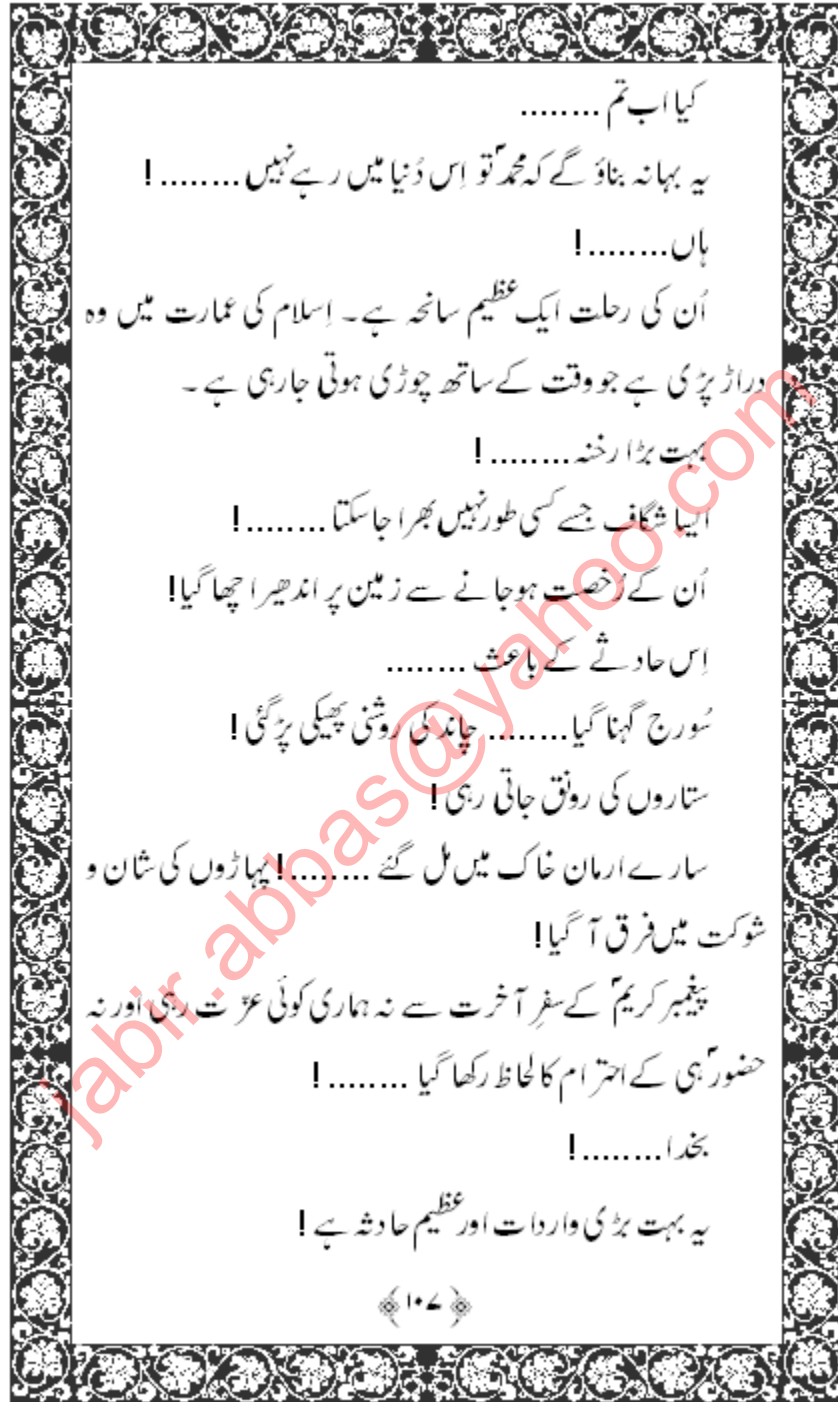 کیا اب تم ........
یہ بہانہ بناؤ گے کہ محمدؐ تو اِس دُنیا میں رہے نہیں ........ !
ہاں ........ !
اُن کی رحلت ایک عظیم سانحہ ہے۔ اِسلام کی عمارت میں وہ
دراڑ پڑی ہے جو وقت کے ساتھ چوڑی ہوتی جارہی ہے۔
بہت بڑا رخنہ ........ !
ایسا شگاف جسے کسی طور نہیں بھرا جاسکتا ........ !
اُن کے رُخصت ہوجانے سے زمین پر اندھیرا چھا گیا!
اِس حادثے کے باعث ........
سُورج گہنا گیا ........ چاند کی روشنی پھیکی پڑگئی !
ستاروں کی رونق جاتی رہی !
سارے ارمان خاک میں مل گئے ........ ! پہاڑوں کی شان و
شوکت میں فرق آ گیا!
پیغمبر کریمؐ کے سفرِ آخرت سے نہ ہماری کوئی عزّت رہی اور نہ
حضورؐ ہی کے احترام کا لحاظ رکھا گیا ........ !
بخدا ........ !
یہ بہت بڑی واردات اور عظیم حادثہ ہے !
﴿۱۰۷﴾
jabir.abbas@yahoo.com